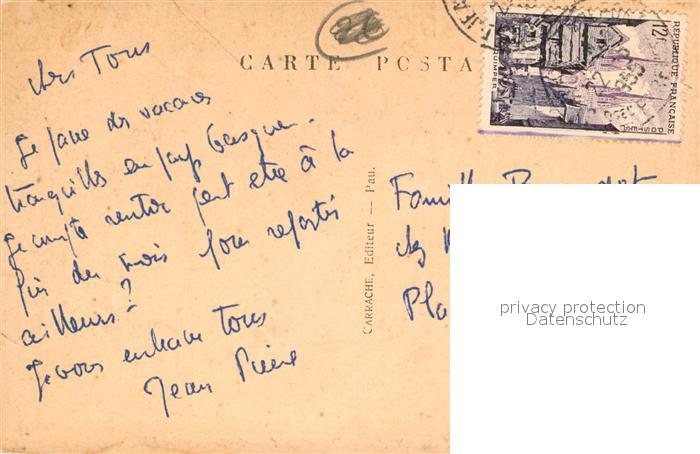 CARTE POSTA
chers Tous
Je passe des vacances
tranquilles en pays basque.
Je compte rentrer peut etre à la
fin du mois pour repartir
ailleurs?
Je vous embrasse tous
Jean Pierre
CARRACHE, Editeur — Pau.
RÉPUBLIQUE FRANÇAISE
12F
POSTES
QUIMPER
Famille
chez
Pla
22
privacy protection
Datenschutz